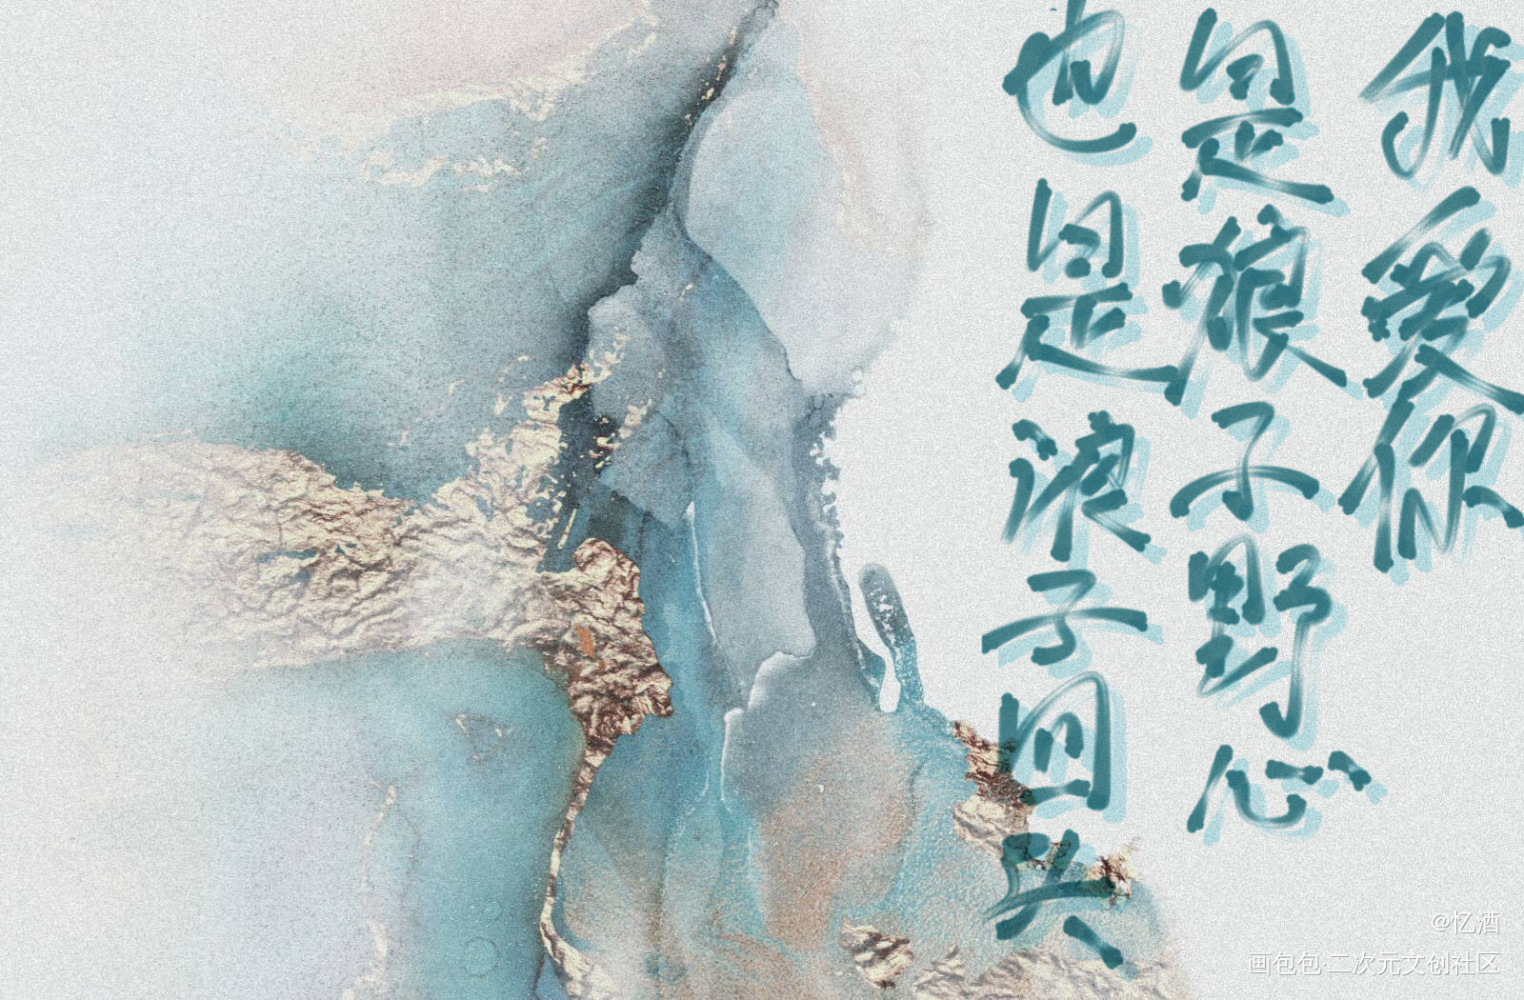 我爱你
是狼子野心
也是浪子回头
@忆酒
画包包·二次元文创社区